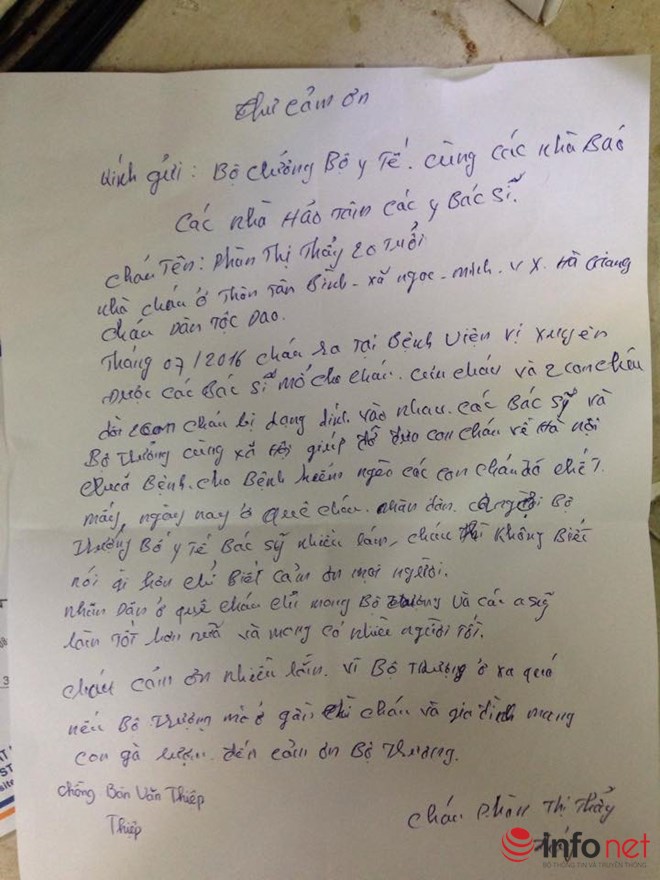 Thư cảm ơn
Kính gửi: Bộ chưởng Bộ y Tế. cùng các nhà Báo
Các nhà Hảo Tâm các y Bác Sĩ.
cháu Tên: Phàn Thị Thẩy 20 Tuổi
nhà cháu ở Thôn Tân Bình - xã ngọc - minh. V X. Hà Giang
cháu Dân Tộc Dao.
Tháng 07/2016 cháu ra Tại Bệnh viện vị xuyên
Được các Bác Sĩ mổ cho cháu. cứu cháu và 2 con cháu
đôi con cháu bị dạng dính vào nhau. các Bác Sỹ và
Bộ Trưởng cùng xã hội giúp đỡ đưa con cháu về Hà nội
chưa Bệnh. cho Bệnh hiểm ngèo các con cháu đã chết.
mấy ngày nay ở quê cháu. nhân dân. Bộ
Trưởng Bộ y Tế Bác Sỹ nhiều lắm, cháu thì không Biết
nói gì hơn chỉ Biết cảm ơn mọi người.
nhân Dân ở quê cháu chỉ mong Bộ Trưởng và các sỹ
làm Tốt hơn nữa và mong có nhiều người Tốt.
cháu cảm ơn nhiều lắm. vì Bộ Trưởng ở xa quá
nếu Bộ Trưởng mà ở gần thì cháu và gia đình mang
con gà đến cảm ơn Bộ Trưởng.
chồng Bàn Văn Thiệp
Thiệp
cháu Phàn Thị Thẩy
infonet
BỘ THÔNG TIN VÀ TRUYỀN THÔNG